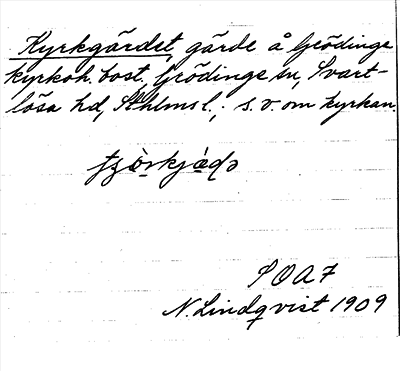 Kyrkgärdet, gärde å Grödinge
kyrkoh. bost., Grödinge sn, Svart-
lösa hd, Sthlms l.; s.v. om kyrkan.
SOA7
N. Lindqvist 1909